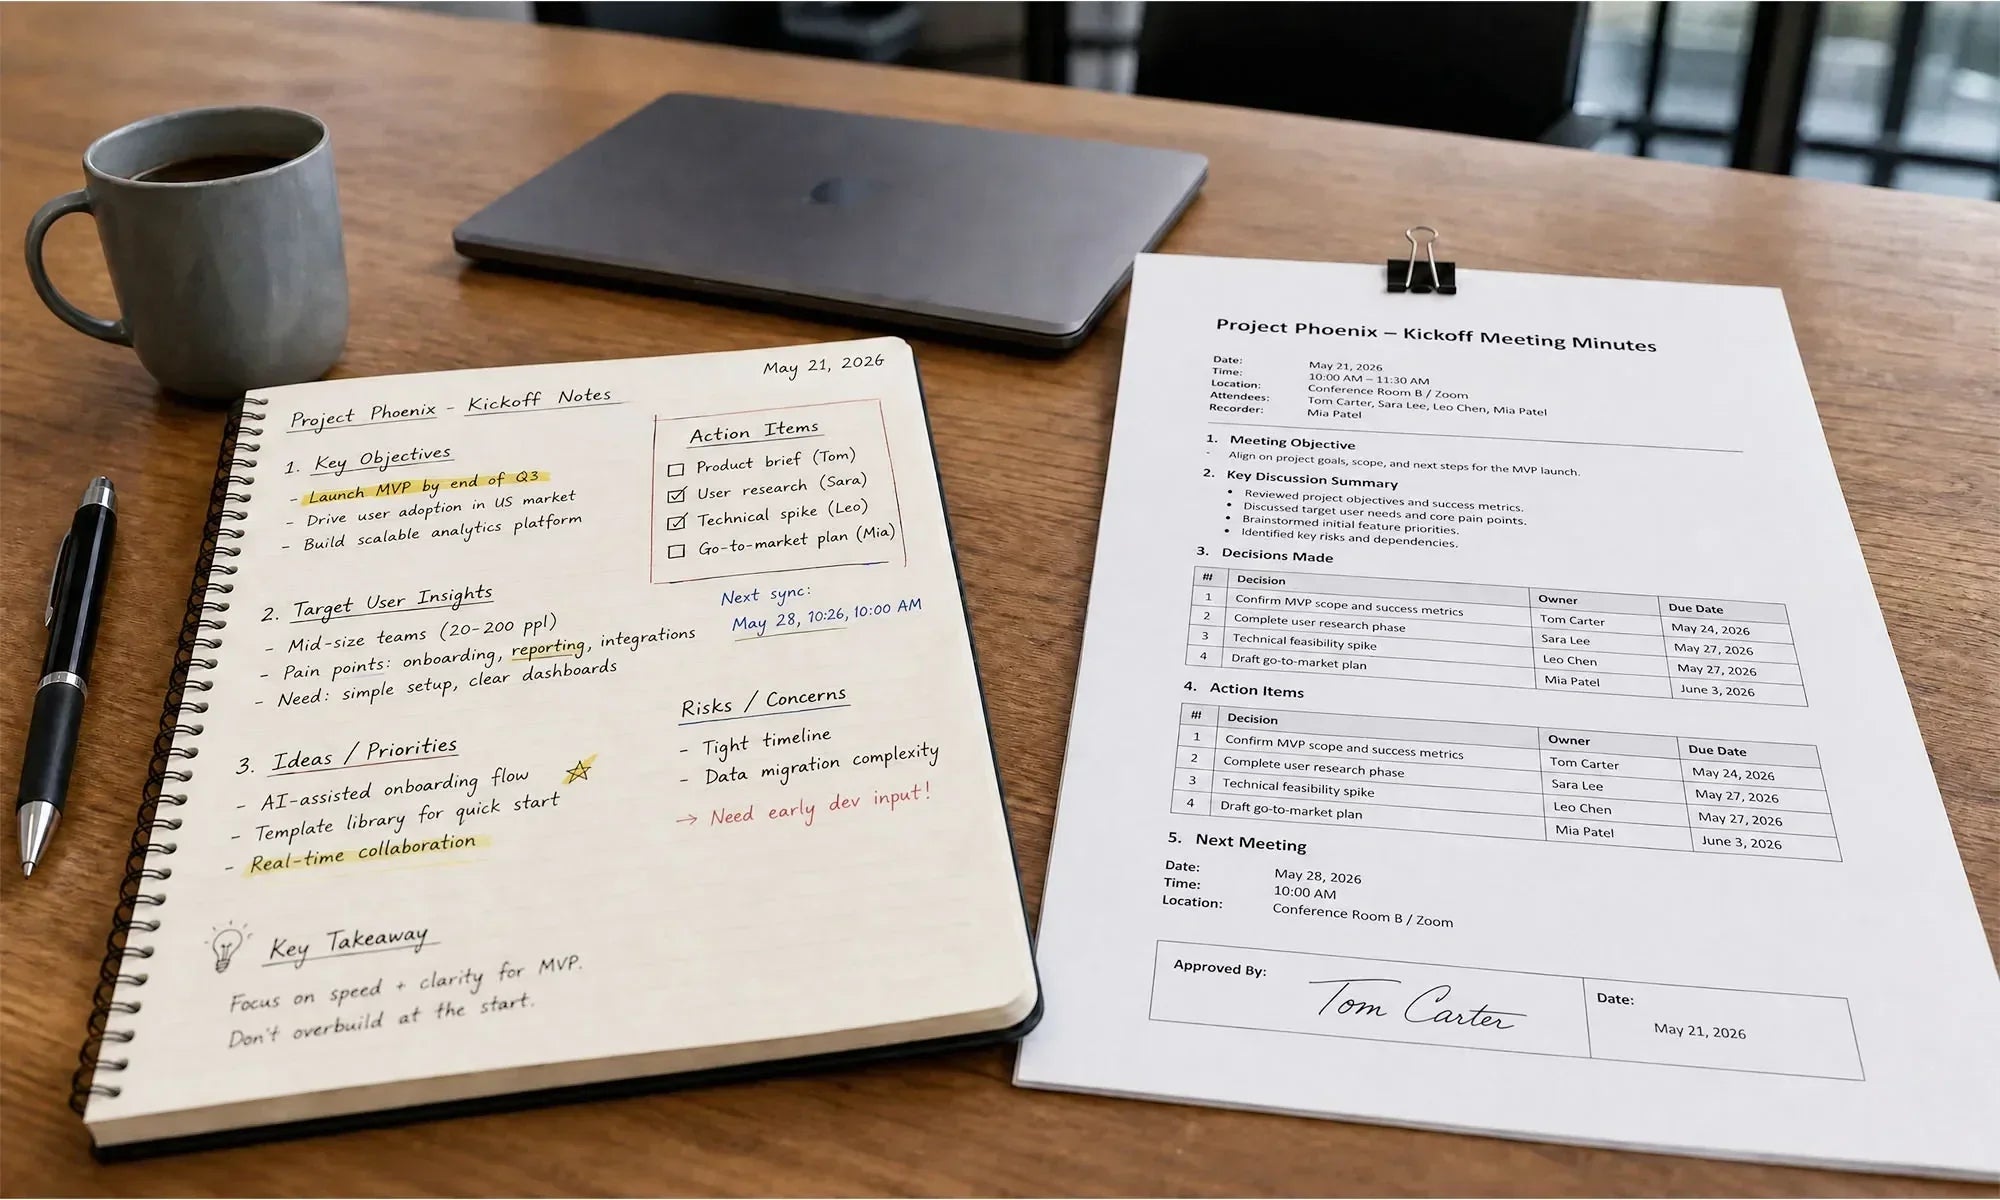 May 21, 2026
Project Phoenix - Kickoff Notes
1. Key Objectives
- Launch MVP by end of Q3
- Drive user adoption in US market
- Build scalable analytics platform
Action Items
☐ Product brief (Tom)
☑ User research (Sara)
☑ Technical spike (Leo)
☐ Go-to-market plan (Mia)
Next sync:
May 28, 10:26, 10:00 AM
2. Target User Insights
- Mid-size teams (20-200 ppl)
- Pain points: onboarding, reporting, integrations
- Need: simple setup, clear dashboards
Risks / Concerns
- Tight timeline
- Data migration complexity
→ Need early dev input!
3. Ideas / Priorities
- AI-assisted onboarding flow ☆
- Template library for quick start
- Real-time collaboration
Key Takeaway
Focus on speed + clarity for MVP.
Don't overbuild at the start.
Project Phoenix – Kickoff Meeting Minutes
Date: May 21, 2026
Time: 10:00 AM – 11:30 AM
Location: Conference Room B / Zoom
Attendees: Tom Carter, Sara Lee, Leo Chen, Mia Patel
Recorder: Mia Patel
1. Meeting Objective
- Align on project goals, scope, and next steps for the MVP launch.
2. Key Discussion Summary
• Reviewed project objectives and success metrics.
• Discussed target user needs and core pain points.
• Brainstormed initial feature priorities.
• Identified key risks and dependencies.
3. Decisions Made
# Decision Owner Due Date
1 Confirm MVP scope and success metrics Tom Carter May 24, 2026
2 Complete user research phase Sara Lee May 27, 2026
3 Technical feasibility spike Leo Chen May 27, 2026
4 Draft go-to-market plan Mia Patel June 3, 2026
4. Action Items
# Decision Owner Due Date
1 Confirm MVP scope and success metrics Tom Carter May 24, 2026
2 Complete user research phase Sara Lee May 27, 2026
3 Technical feasibility spike Leo Chen May 27, 2026
4 Draft go-to-market plan Mia Patel June 3, 2026
5. Next Meeting
Date: May 28, 2026
Time: 10:00 AM
Location: Conference Room B / Zoom
Approved By: Tom Carter
Date: May 21, 2026